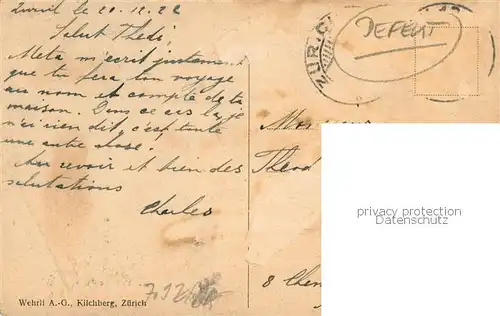 Zurich le 20.12.22
Salut Thedi,
Meta m'ecrit justement
que tu fera ton voyage
au nom et compte de ta
maison. Dans ce cas la, je
n'ai rien dit, c'est toute
une autre chose!
Au revoir et bien des
salutations
Charles
ZÜRICH
DEFEKT
Theod
8 Chem
privacy protection
www.ansichtskartenversand.com
Wehrli A.-G., Kilchberg, Zürich